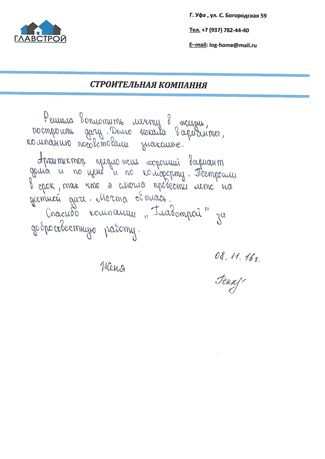 ГЛАВСТРОЙ
Г. Уфа , ул. С. Богородская 59
Тел. +7 (937) 782-44-40
E-mail: log-home@mail.ru
СТРОИТЕЛЬНАЯ КОМПАНИЯ
Решила воплотить мечту в жизнь,
построить дачу. Долго искала варианты,
компанию посоветовали знакомые.
Архитектор предложил хороший вариант
дома и по цене и по комфорту. Построили
в срок, так что я смогла провести лето на
уютной даче. Мечта сбылась.
Спасибо компании "Главстрой" за
добросовестную работу.
08.11.16г.
Женя